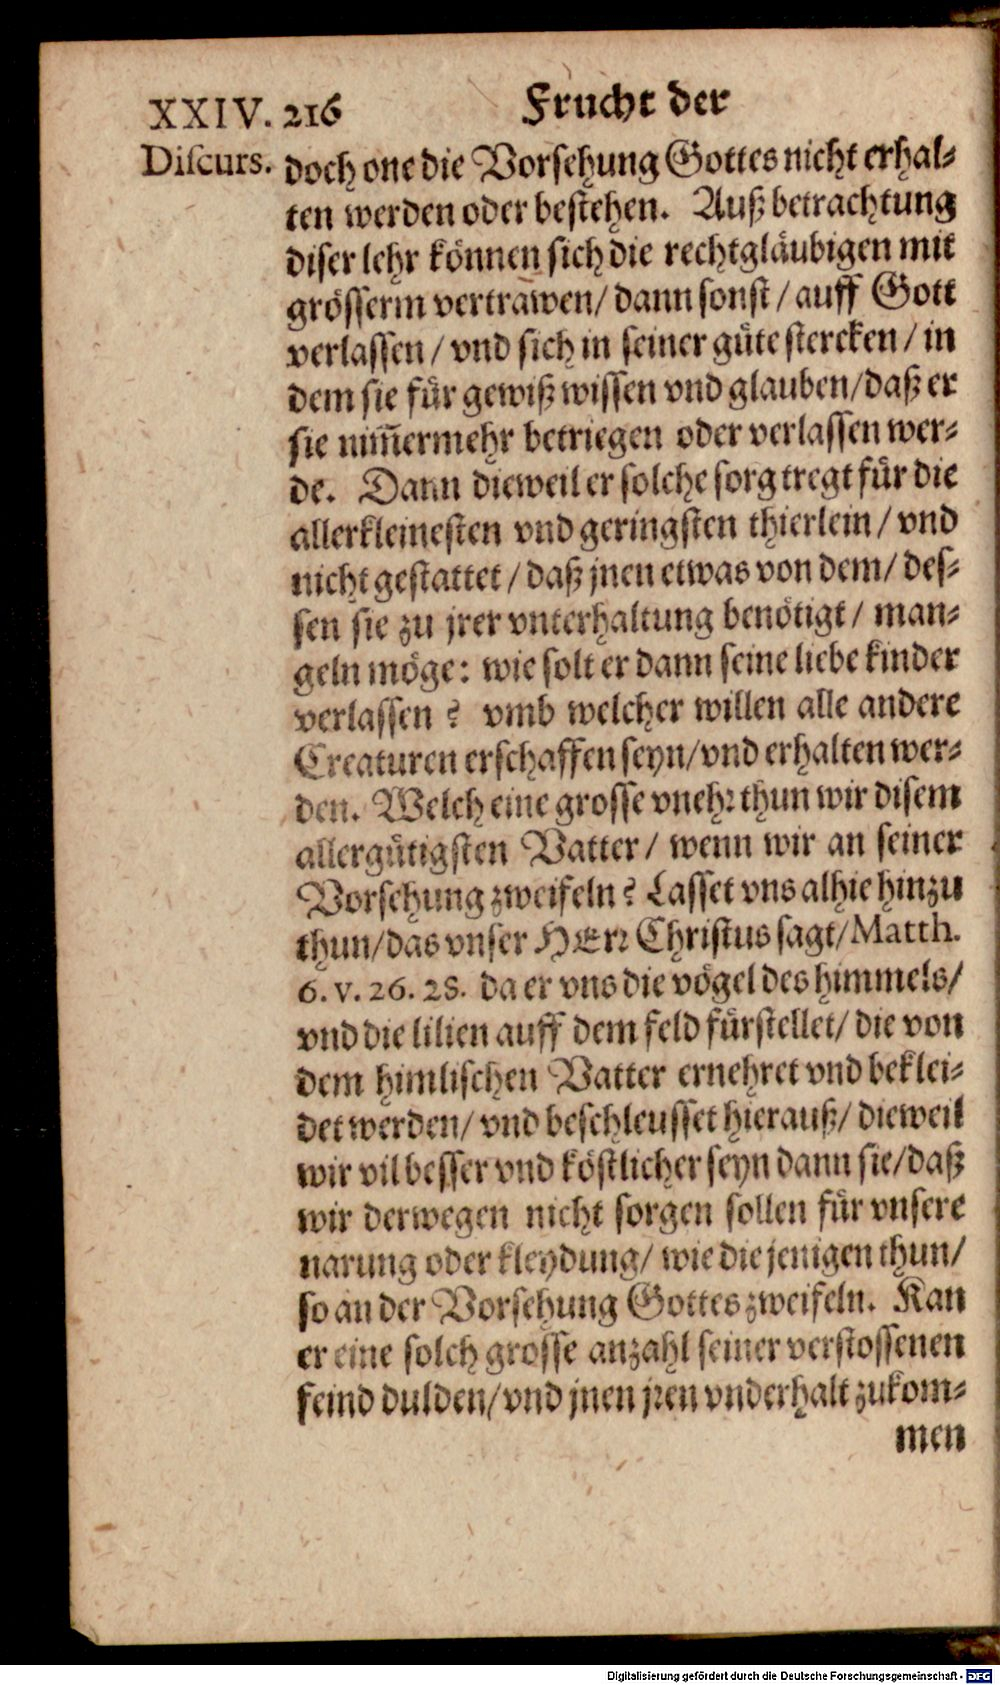 XXIV. 216 Frucht der
Discurs. doch one die Vorsehung Gottes nicht erhal⸗
ten werden oder bestehen. Auß betrachtung
diser lehr können sich die rechtgläubigen mit
grösserm vertrawen/ dann sonst / auff Gott
verlassen / vnd sich in seiner güte stercken / in
dem sie für gewiß wissen vnd glauben/ daß er
sie nim̃ermehr betriegen oder verlassen wer⸗
de. Dann dieweil er solche sorg tregt für die
allerkleinesten vnd geringsten thierlein / vnd
nicht gestattet / daß jnen etwas von dem/ des⸗
sen sie zu jrer vnterhaltung benötigt / man⸗
geln möge: wie solt er dann seine liebe kinder
verlassen? vmb welcher willen alle andere
Creaturen erschaffen seyn/ vnd erhalten wer⸗
den. Welch eine grosse vnehr thun wir disem
allergütigsten Vatter / wenn wir an seiner
Vorsehung zweifeln? Lasset vns alhie hinzu
thun/ das vnser HErr Christus sagt/ Matth.
6. v. 26. 28. da er vns die vögel des himmels/
vnd die lilien auff dem feld fürstellet/ die von
dem himlischen Vatter ernehret vnd beklei⸗
det werden/ vnd beschleusset hierauß/ dieweil
wir vil besser vnd köstlicher seyn dann sie/ daß
wir derwegen nicht sorgen sollen für vnsere
narung oder kleydung/ wie die jenigen thun/
so an der Vorsehung Gottes zweifeln. Kan
er eine solch grosse anzahl seiner verstossenen
feind dulden/ vnd jnen jren vnderhalt zukom⸗
men
Digitalisierung gefördert durch die Deutsche Forschungsgemeinschaft - DFG